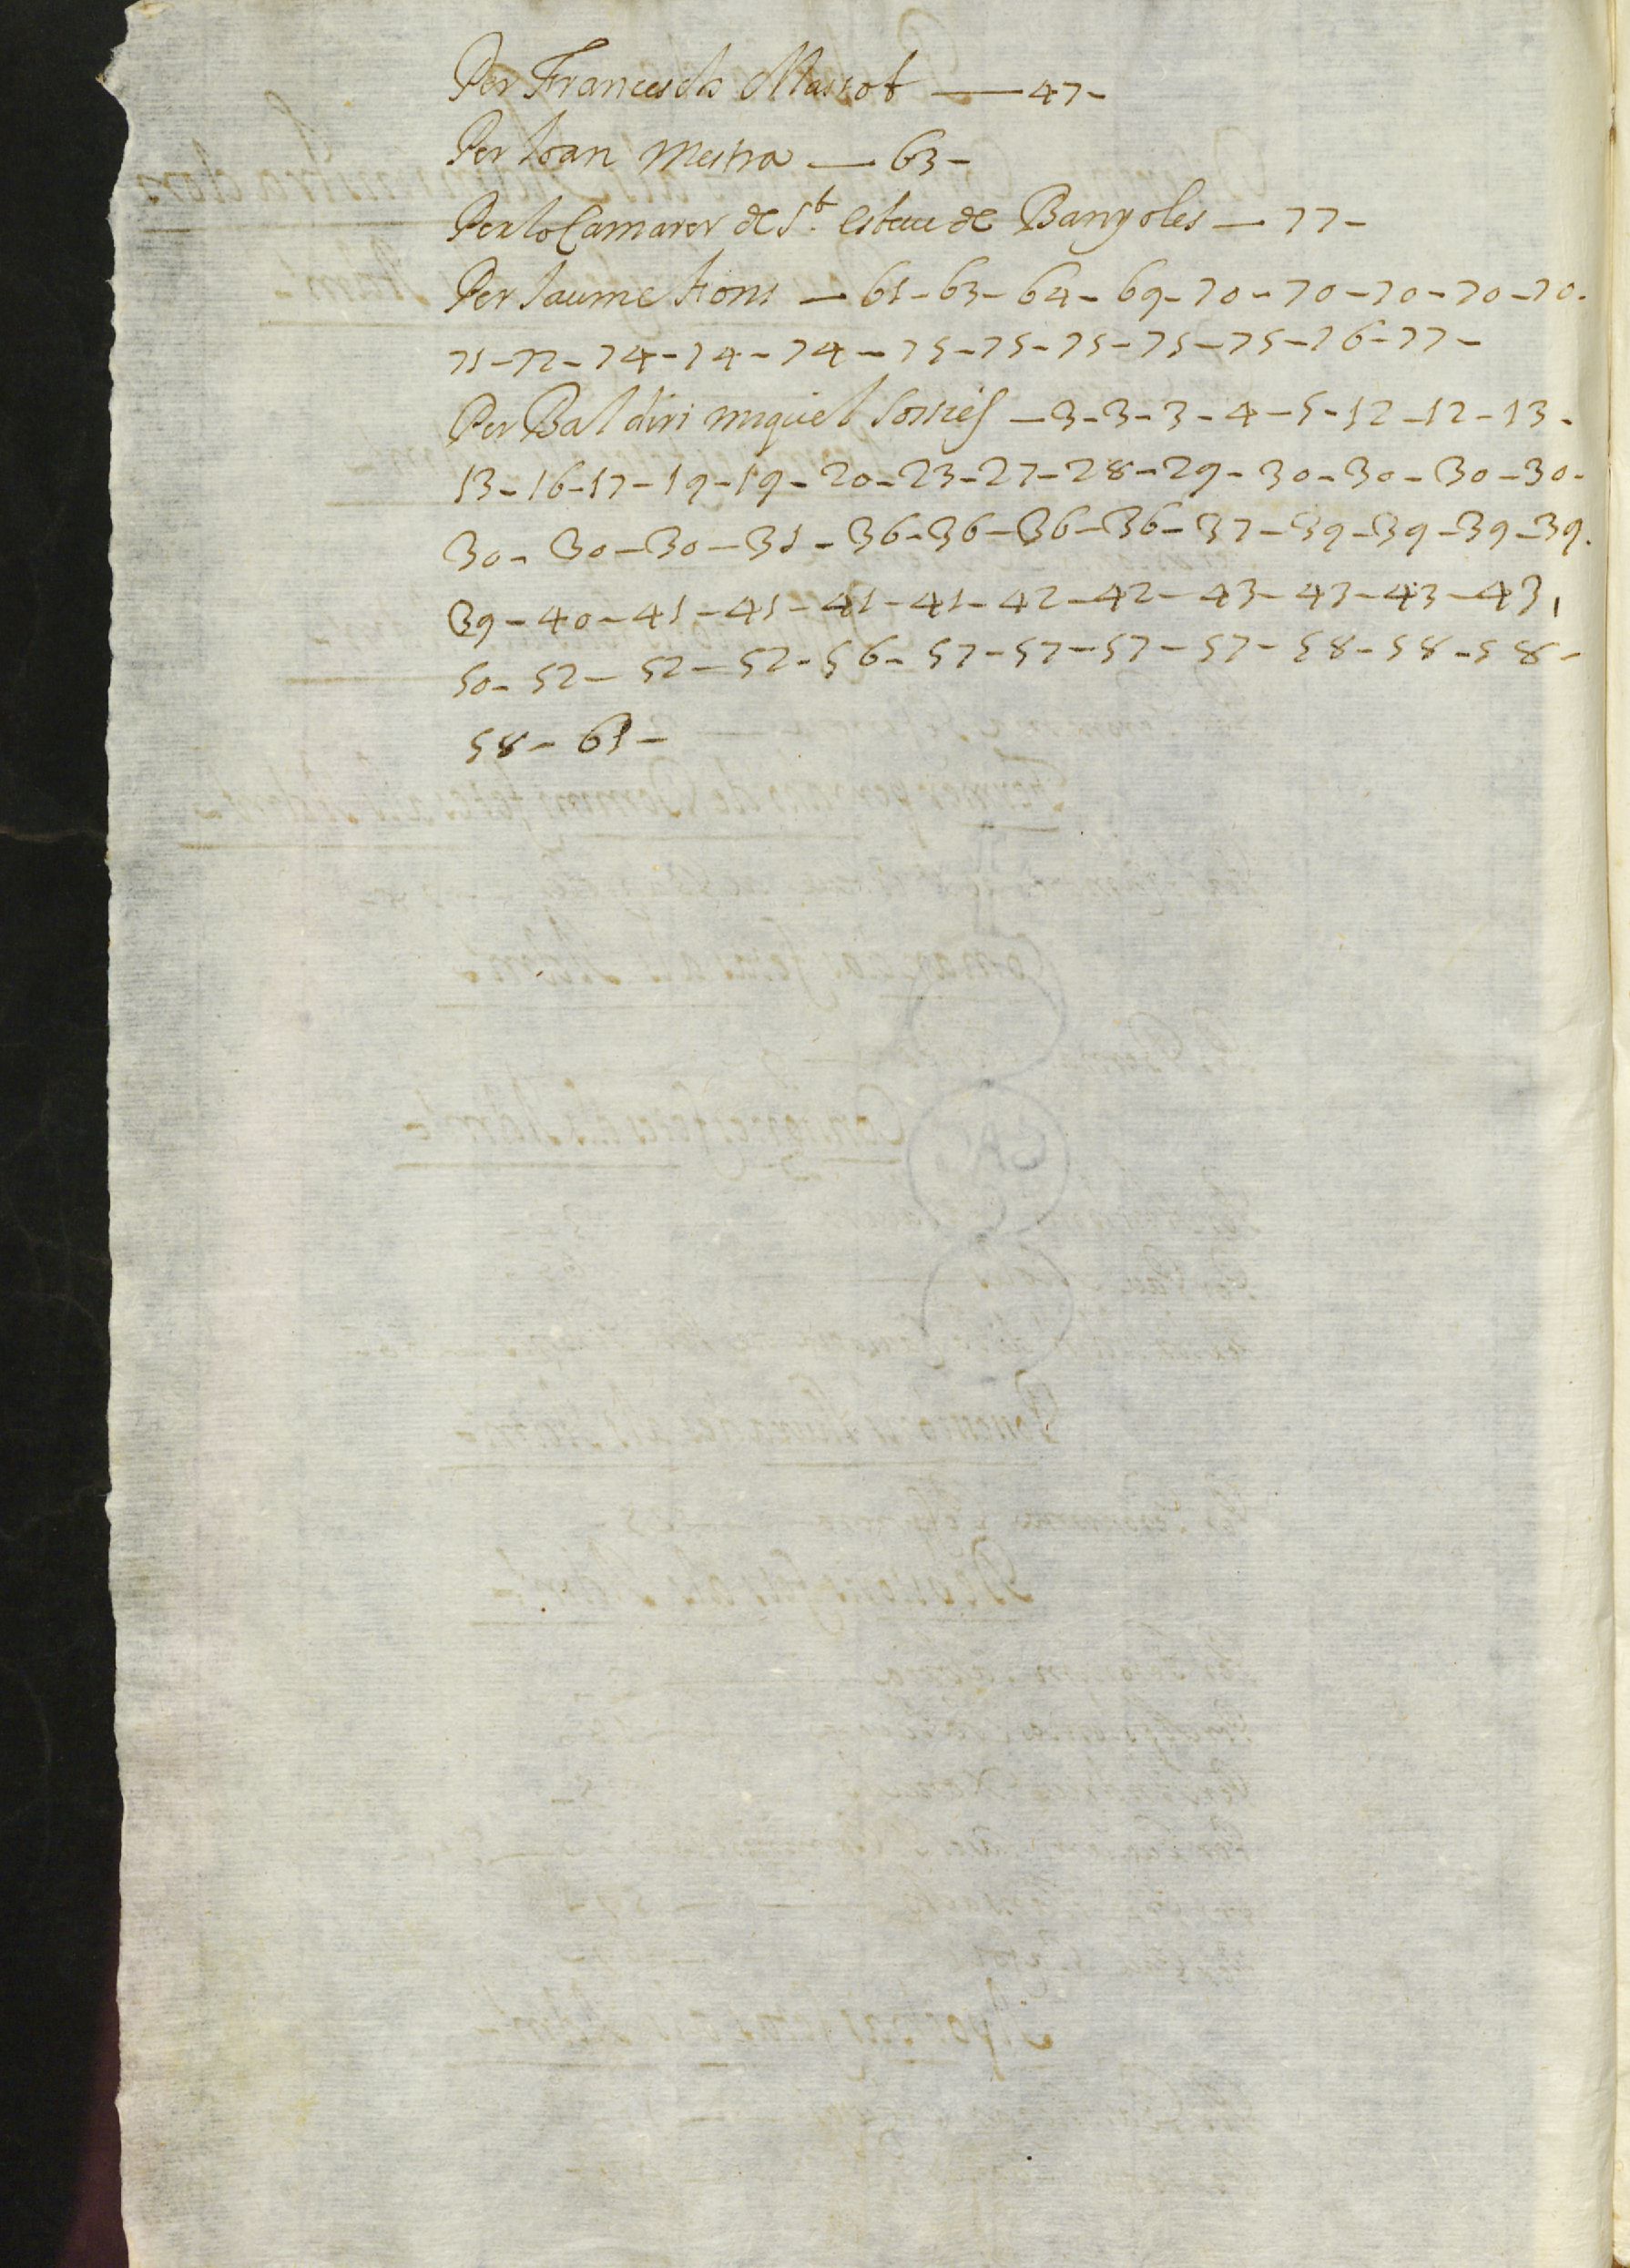 Per Francesch Massot — 47 -
Per Joan Mestra — 63 -
Per lo Camarer de St. esteue de Banyoles — 77 -
Per Jaume Fons — 61 - 63 - 64 - 69 - 70 - 70 - 70 - 70 - 70 -
71 - 72 - 74 - 74 - 74 - 75 - 75 - 75 - 75 - 75 - 76 - 77 -
Per Baldiri miquel — 3 - 3 - 3 - 4 - 5 - 12 - 12 - 13 -
13 - 16 - 17 - 19 - 19 - 20 - 23 - 27 - 28 - 29 - 30 - 30 - 30 - 30 -
30 - 30 - 30 - 31 - 36 - 36 - 36 - 36 - 37 - 39 - 39 - 39 - 39.
39 - 40 - 41 - 41 - 41 - 41 - 42 - 42 - 43 - 43 - 43 - 43,
50 - 52 - 52 - 52 - 56 - 57 - 57 - 57 - 57 - 58 - 58 - 58 -
58 - 61 -